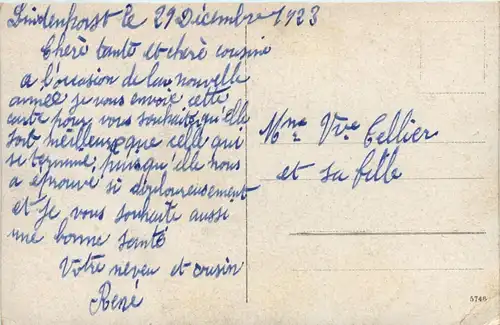 Lindenhorst le 29 Décembre 1923
Cherè tante et cherè cousine
a l'occasion de la nouvelle
année je vous envoie cette
carte pour vous souhaité qu'elle
soit meilleur que celle qui
se termine, puisqu'elle nous
a éprouvé si douloureusement
et je vous souhaite aussi
une bonne santé
Votre neveu et cousin
René
Mme Vve Cellier
et sa fille
5746